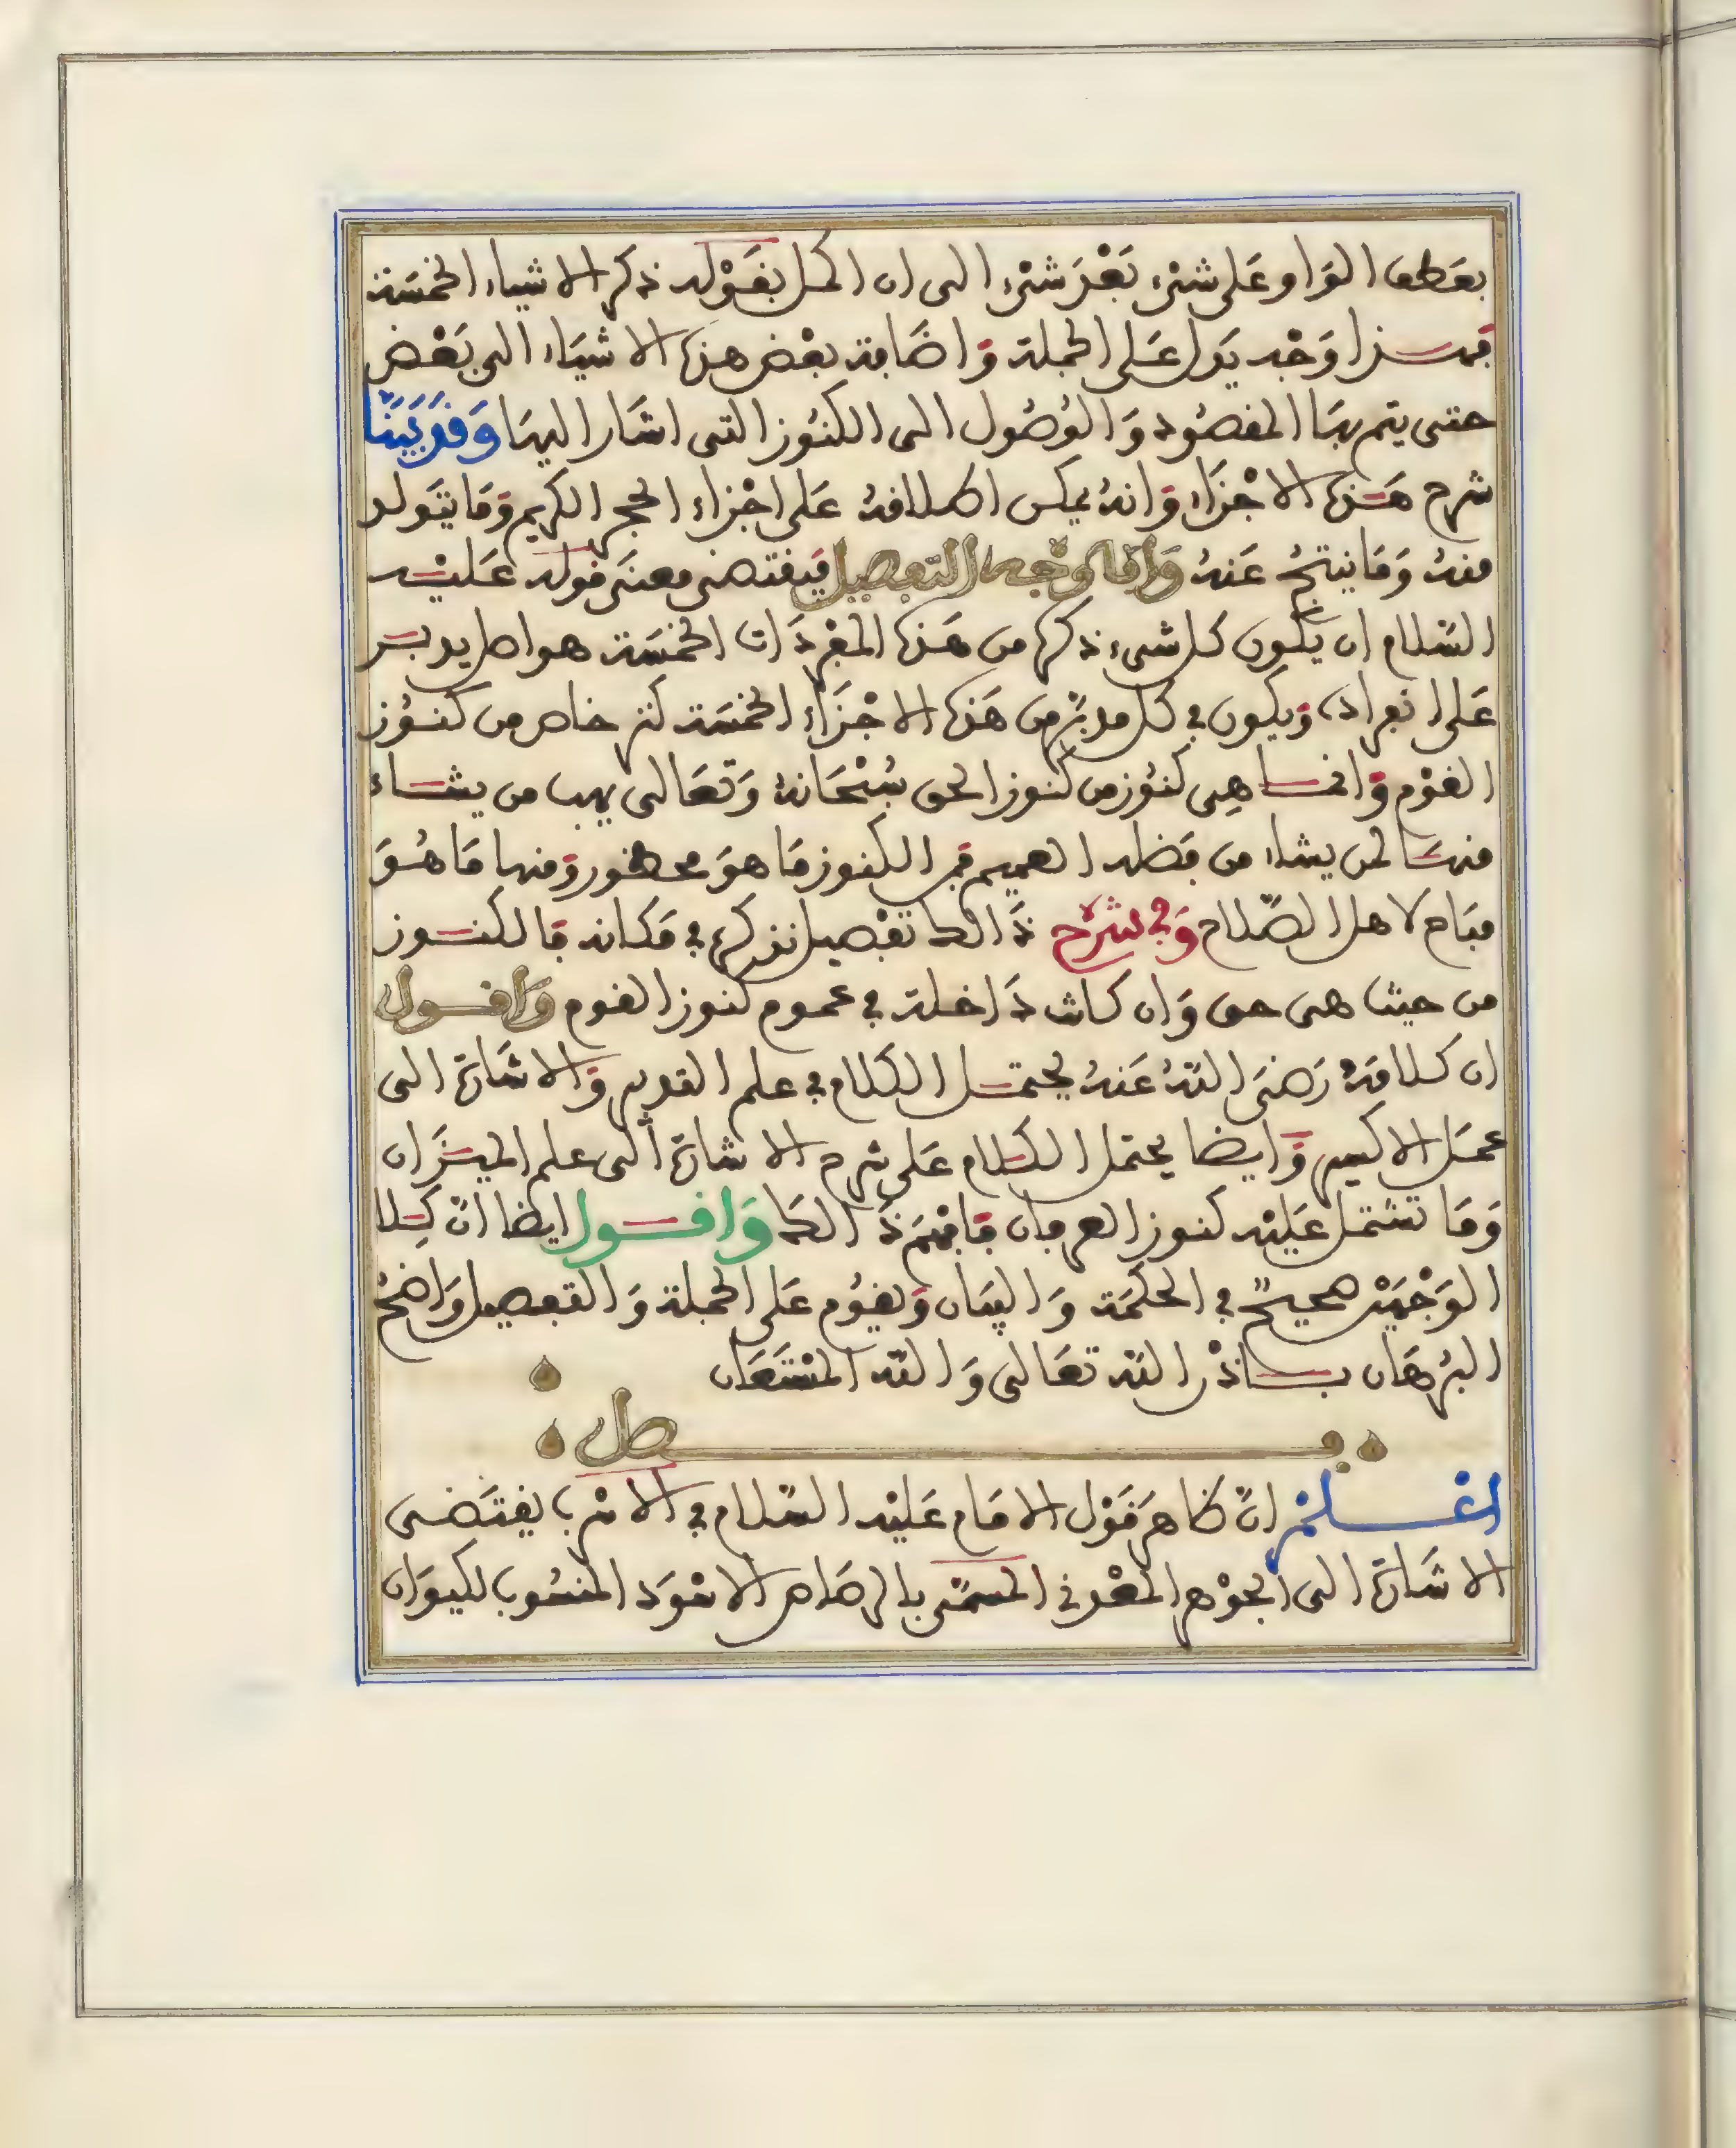 بعطف الواو على شيء بعد شيء الى ان اكمل بقوله ذكر الاشياء الخمسة
فهذا وجه يدل على الجملة واضافة بعض هذه الاشياء الى بعض
حتى يتم بها المقصود والوصول الى الكنوز التى اشار اليها وَقَدْ بَيَّنَّا
شرح هذه الاجزاء وانه يمكن اطلاقه على اجزاء الحجر الكريم وما يتولد
منه وما ينتج عنه وَاما وجه التفصيل فيقتضى معنى قوله عليه
السلام ان يكون كل شيء ذكره من هذه المفردات الخمسة هو اصل يدبر
على انفراده ويكون في كل مدبر من هذه الاجزاء الخمسة كنز خاص من كنوز
القوم وانما هى كنوز من كنوز الحق سبحانه وتعالى يهب من يشاء
منها لمن يشاء من فضله العميم فمن الكنوز ما هو محظور ومنها ما هو
مباح لاهل الصلاح وَفي شرح ذالك تفصيل نذكره في مكانه فالكنوز
من حيث هى حق وان كانت داخلة في عموم كنوز القوم وَاقول
ان كلامه رضى الله عنه يحتمل الكلام في علم القوم والاشارة الى
عمل الاكسير وايضا يحتمل الكلام على شرح الاشارة الى علم الميزان
وما تشتمل عليه كنوز العرفان فافهم ذالك وَاقول ايضا ان كلا
الوجهين صحيح في الحكمة والبيان ويقوم على الجملة والتفصيل واضح
البرهان باذن الله تعالى والله المستعان
فصل
اعلم ان ظاهر قول الامام عليه السلام في الاسرب يقتضى
الاشارة الى الجوهر المعدنى المسمى بالرصاص الاسود المنسوب لكيوان